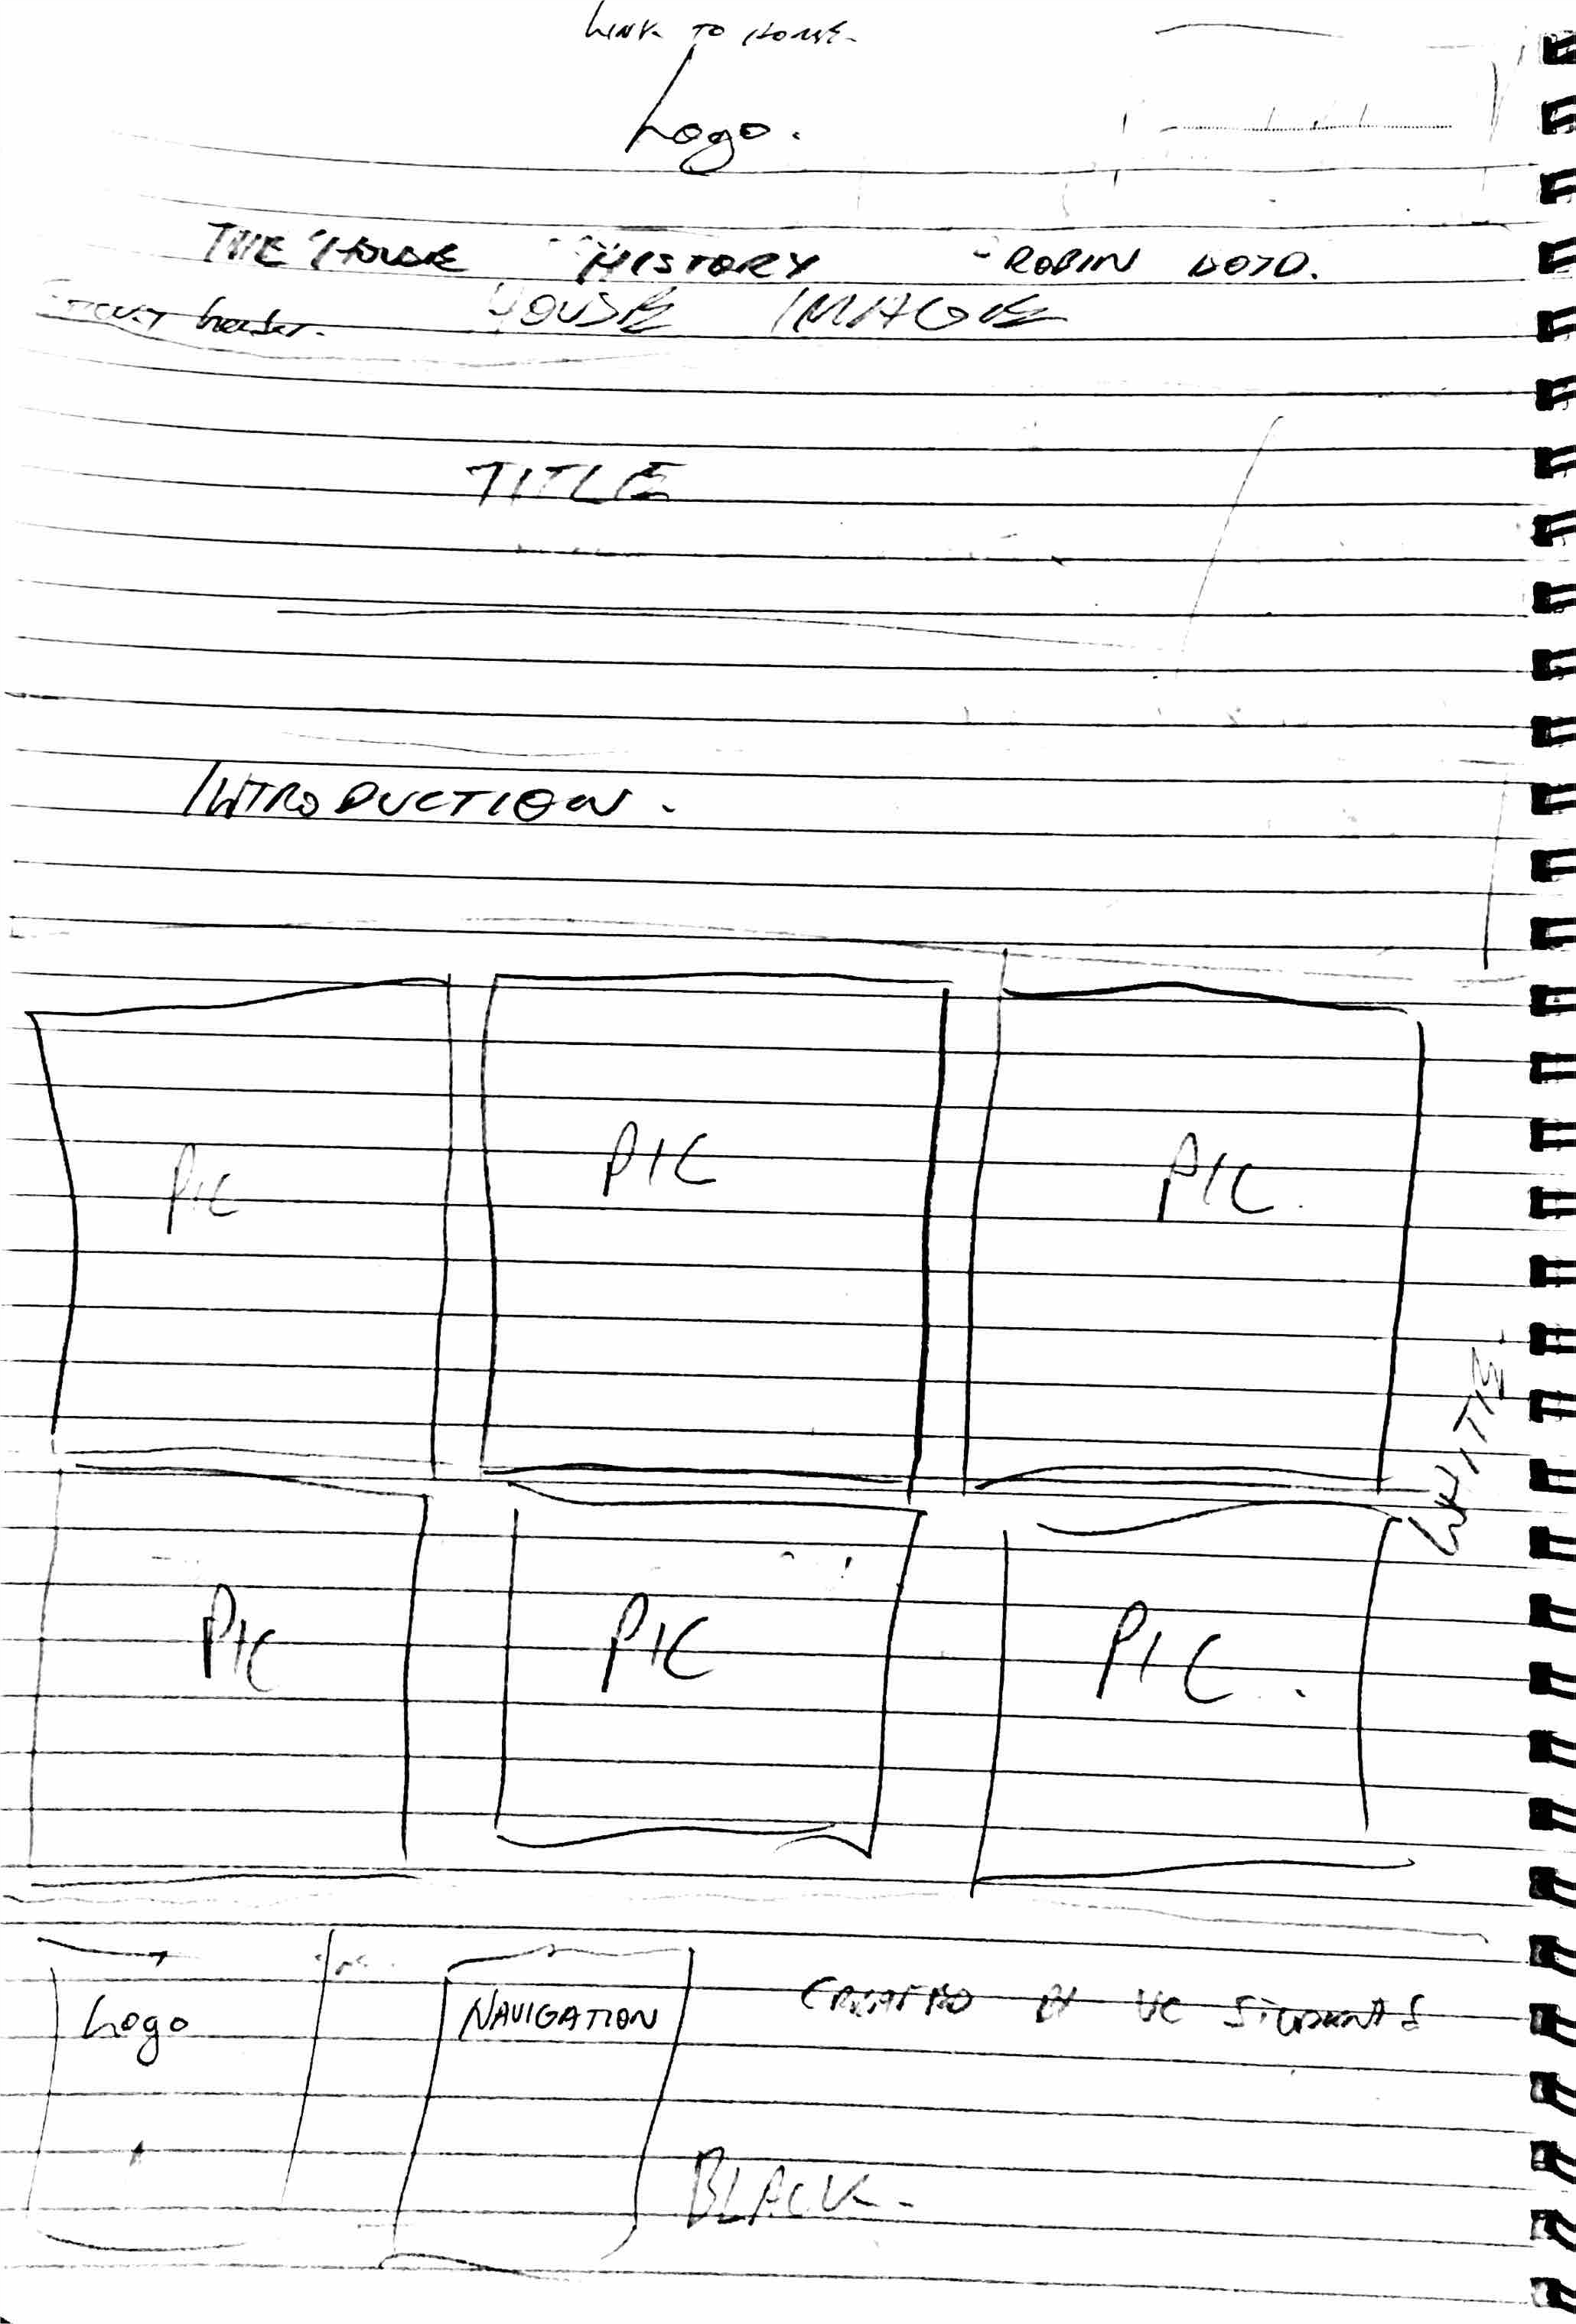 LINK TO HOME.
Logo.
THE HOUSE HISTORY ROBIN DOJD.
header. HOUSE IMAGE
TITLE
INTRODUCTION.
PIC PIC PIC.
WHITE
PIC PIC PIC.
Logo NAVIGATION CREATED BY UC STUDENTS
BLACK.